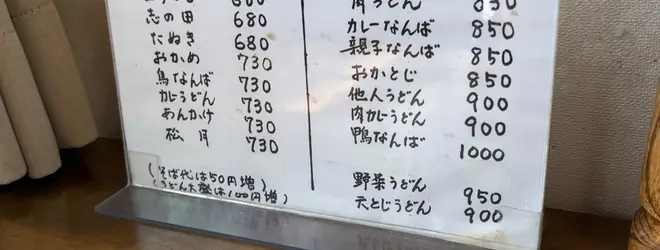 志の田 680
たぬき 680
おかめ 730
鳥なんば 730
カレーうどん 730
あんかけ 730
松月 730
(そば代は50円増)
(うどん大盛は100円増)
肉うどん 850
カレーなんば 850
親子なんば 850
おかとじ 850
他人うどん 900
肉カレーうどん 900
鴨なんば 1000
野菜うどん 950
天とじうどん 900